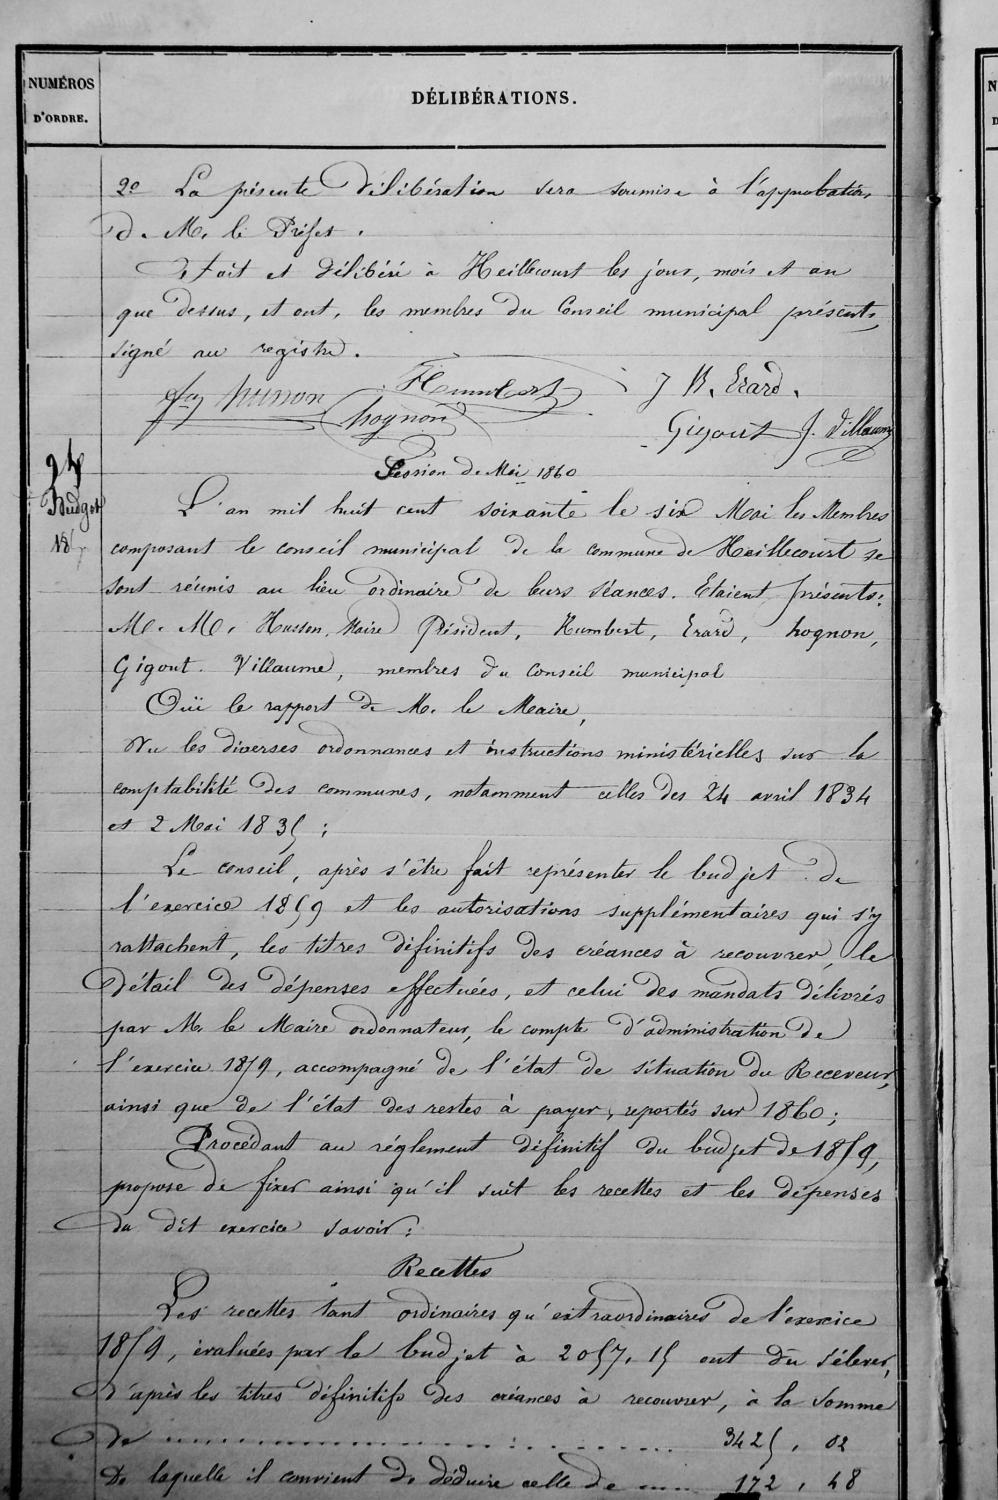 NUMÉROS
D'ORDRE.
DÉLIBÉRATIONS.
2º La présente Délibération sera soumise à l'approbation
de M. le Préfet.
Fait et délibéré à Heillecourt les jour, mois et an
que dessus, et ont, les membres du Conseil municipal présents,
signé au registre.
husson Humbert J B. Erard.
hognon Gigout J. Villaume
Session de Mai 1860
24
Budget
L'an mil huit cent soixante le six Mai les Membres
composant le conseil municipal de la commune de Heillecourt se
sont réunis au lieu ordinaire de leurs séances. Etaient présents:
M. M. Husson, Maire Président, Humbert, Erard, hognon,
Gigout. Villaume, membres du Conseil municipal
Ouï le rapport de M. le Maire,
Vu les diverses ordonnances et instructions ministérielles sur la
comptabilité des communes, notamment celles des 24 avril 1834
et 2 Mai 1835;
Le conseil, après s'être fait représenter le budjet de
l'exercice 1859 et les autorisations supplémentaires qui s'y
rattachent, les titres définitifs des créances à recouvrer, le
Détail des dépenses effectuées, et celui des mandats délivrés
par M. le Maire ordonnateur, le compte d'administration de
l'exercice 1859, accompagné de l'état de situation du Receveur,
ainsi que de l'état des restes à payer, reportés sur 1860;
Procédant au réglement définitif du budjet de 1859,
propose de fixer ainsi qu'il suit les recettes et les dépenses
du dit exercice savoir:
Recettes
Les recettes tant ordinaires qu'extraordinaires de l'exercice
1859, évaluées par le budjet à 2057,15 ont du s'élever,
d'après les titres définitifs des créances à recouvrer, à la somme
de ........ 3425, 02
De laquelle il convient de déduire celle de ..... 172, 48